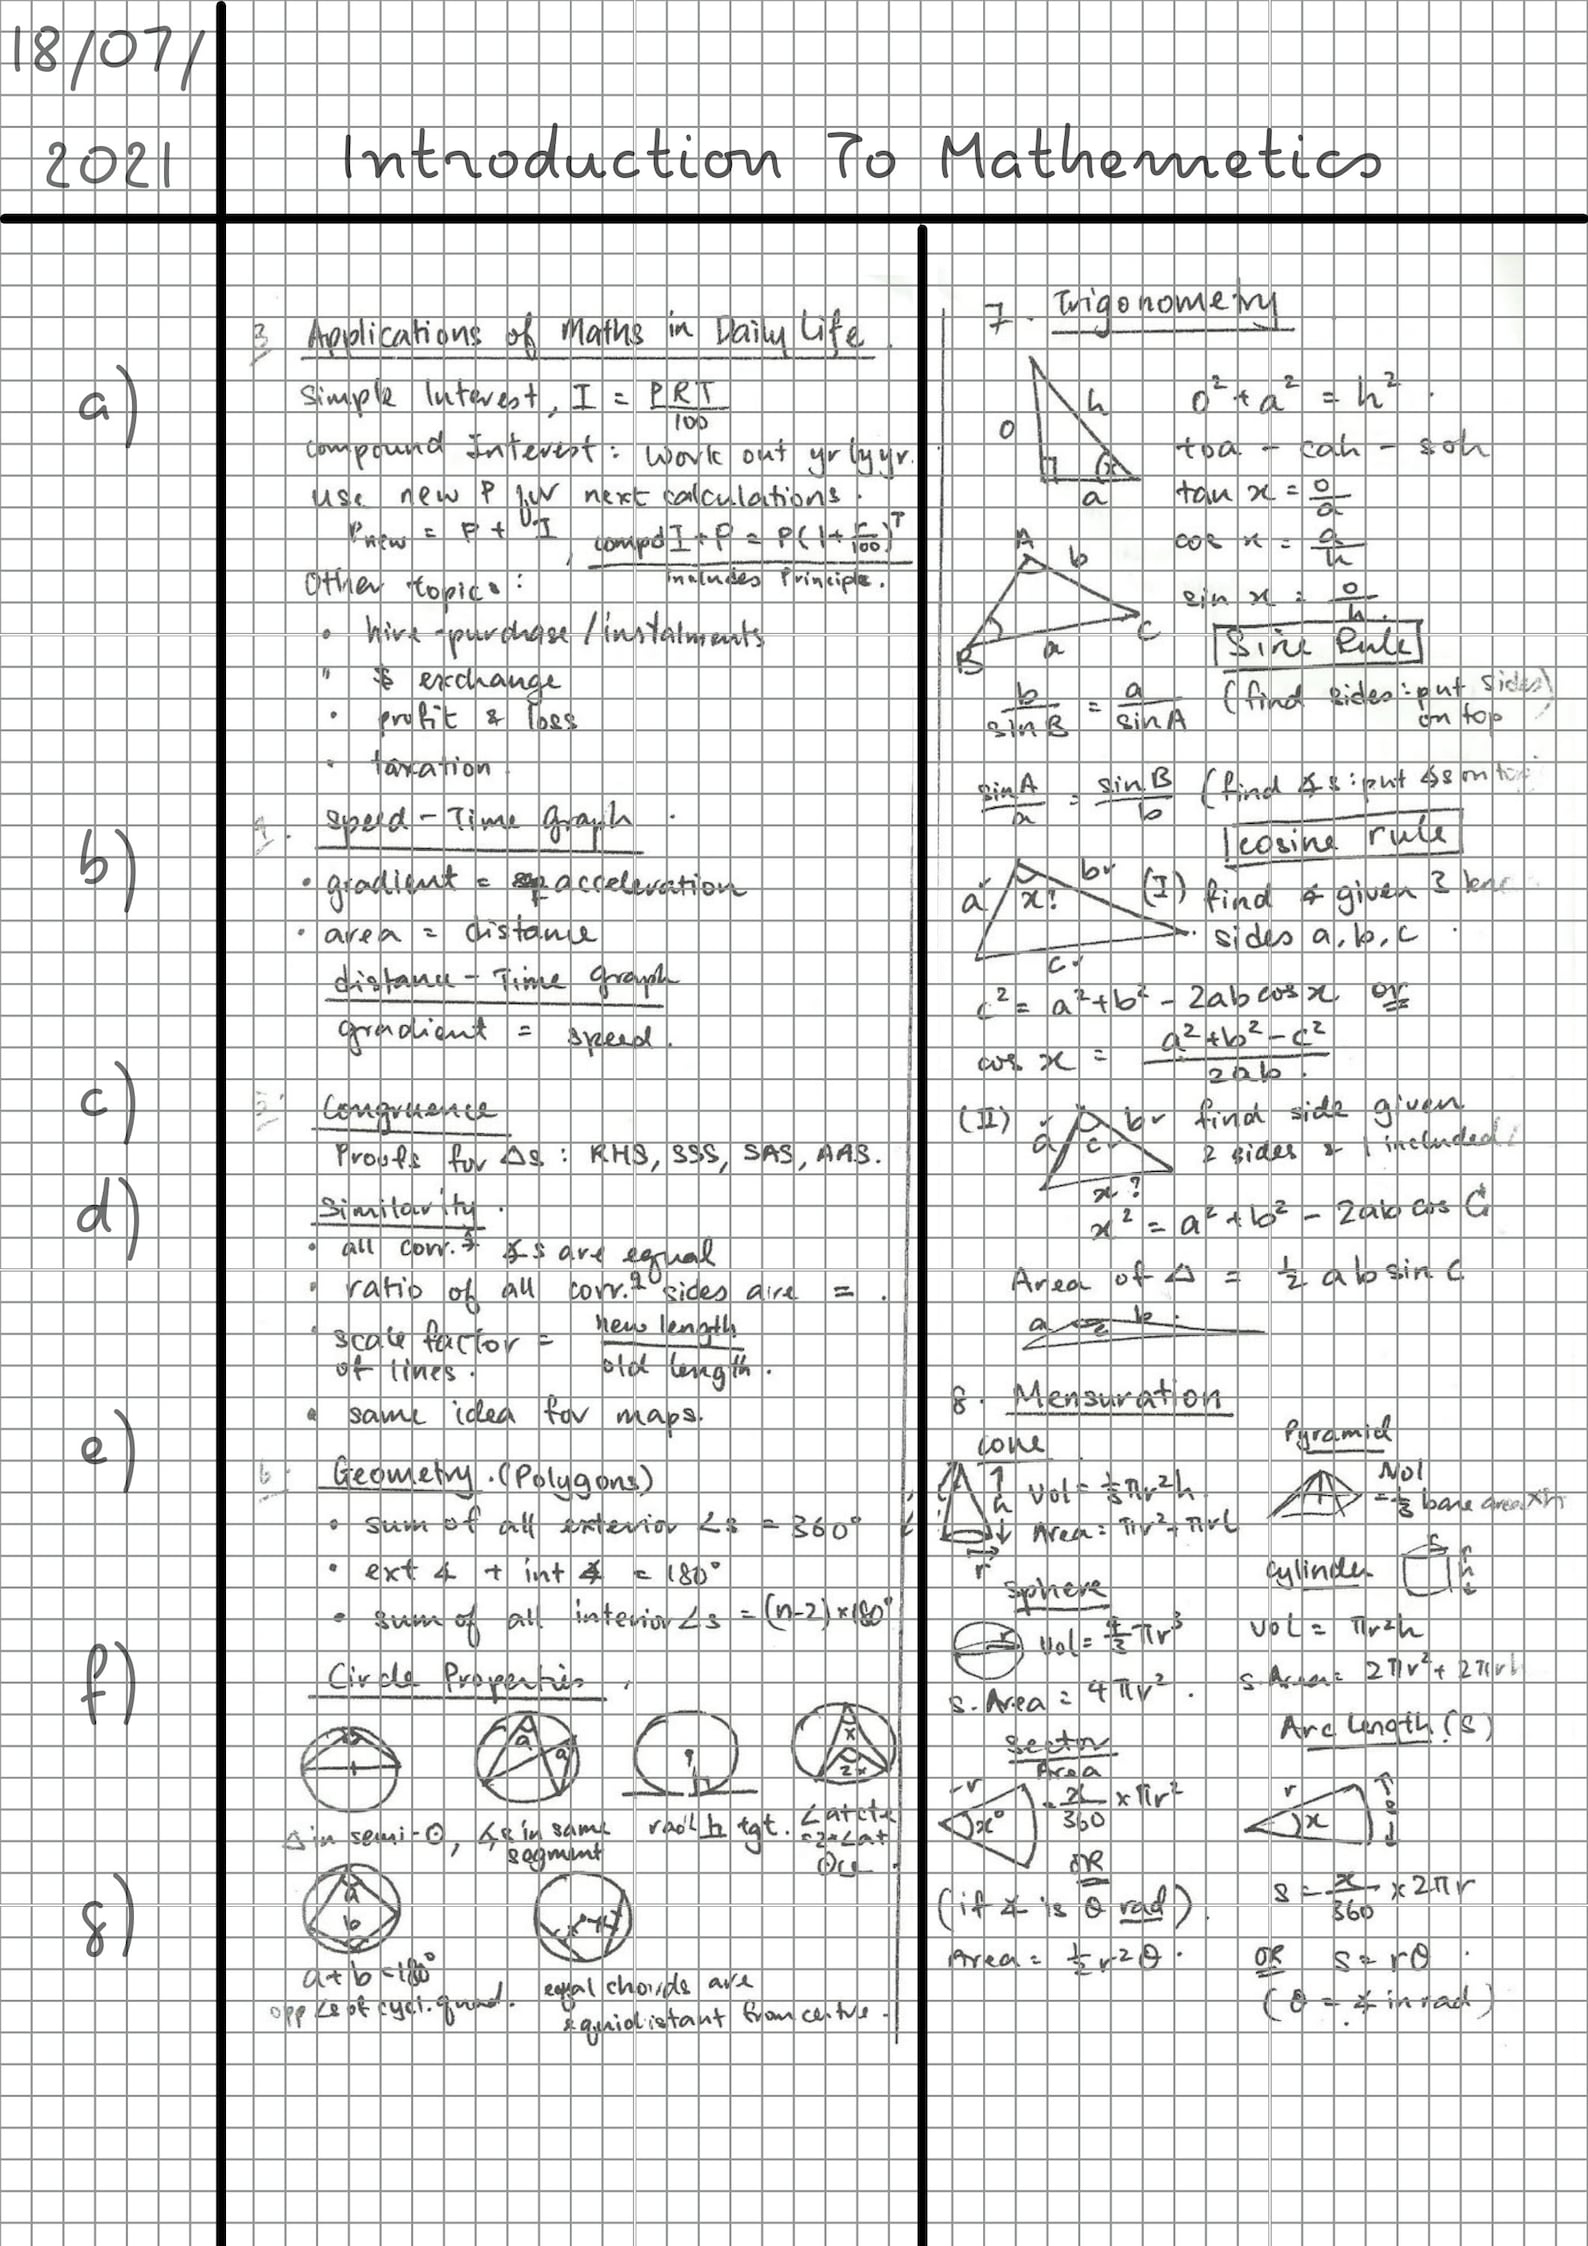 18/07/
2021
Introduction To Mathemetics
a)
b)
c)
d)
e)
f)
g)
3 Applications of Maths in Daily Life.
Simple Interest, I = PRT/100
compound Interest: work out yr by yr.
use new P for next calculations.
Pnew = P + I, compd I + P = P(1+r/100)^T
includes Principle.
Other topics:
• hire-purchase/instalments
" $ exchange
• profit & loss
• taxation.
4. speed - Time Graph.
• gradient = acceleration
• area = distance
distance - Time Graph
gradient = speed.
5. Congruence
Proofs for △s : RHS, SSS, SAS, AAS.
Similarity.
• all corr. ∡s are equal
• ratio of all corr. sides are = .
• scale factor = new length/old length.
of lines.
• same idea for maps.
6. Geometry. (Polygons)
• sum of all exterior ∠s = 360°
• ext ∡ + int ∡ = 180°
• sum of all interior ∠s = (n-2)×180°
Circle Properties.
a
a
x
2x
△ in semi-⊙, ∡s in same
segment
rad ⊥ tgt.
∠ at ctr
= 2×∠ at
⊙ce.
a
b
a+b = 180°
opp ∠s of cycl. quad.
equal chords are
equidistant from centre.
7. Trigonometry
o
h
a
x
o² + a² = h².
toa - cah - soh
tan x = o/a
cos x = a/h
sin x = o/h
A
b
B
a
C
Sine Rule
b/sinB = a/sinA (find sides: put sides
on top)
sinA/a = sinB/b (find ∡s: put ∡s on top
cosine rule
a
b
x?
c
(I) find ∡ given 3
sides a, b, c
c² = a² + b² - 2ab cos x or
cos x = a² + b² - c²/2ab.
(II) a
b
c
x?
find side given
2 sides & 1 included
x² = a² + b² - 2ab cos C
Area of △ = ½ ab sin C
a
b
8. Mensuration
Cone
h
r
Vol = ⅓πr²h
Area = πr² + πrl
Pyramid
Vol
= ⅓ base area × h
Cylinder
r
h
vol = πr²h
s. Area = 2πr² + 2πrh
Sphere
r
Vol = 4/3 πr³
s. Area = 4πr².
Sector
Area
r
x°
= x/360 × πr²
OR
(if ∡ is θ rad).
Area = ½r²θ.
Arc Length (S)
r
x
s = x/360 × 2πr
OR s = rθ
(θ = ∡ in rad)